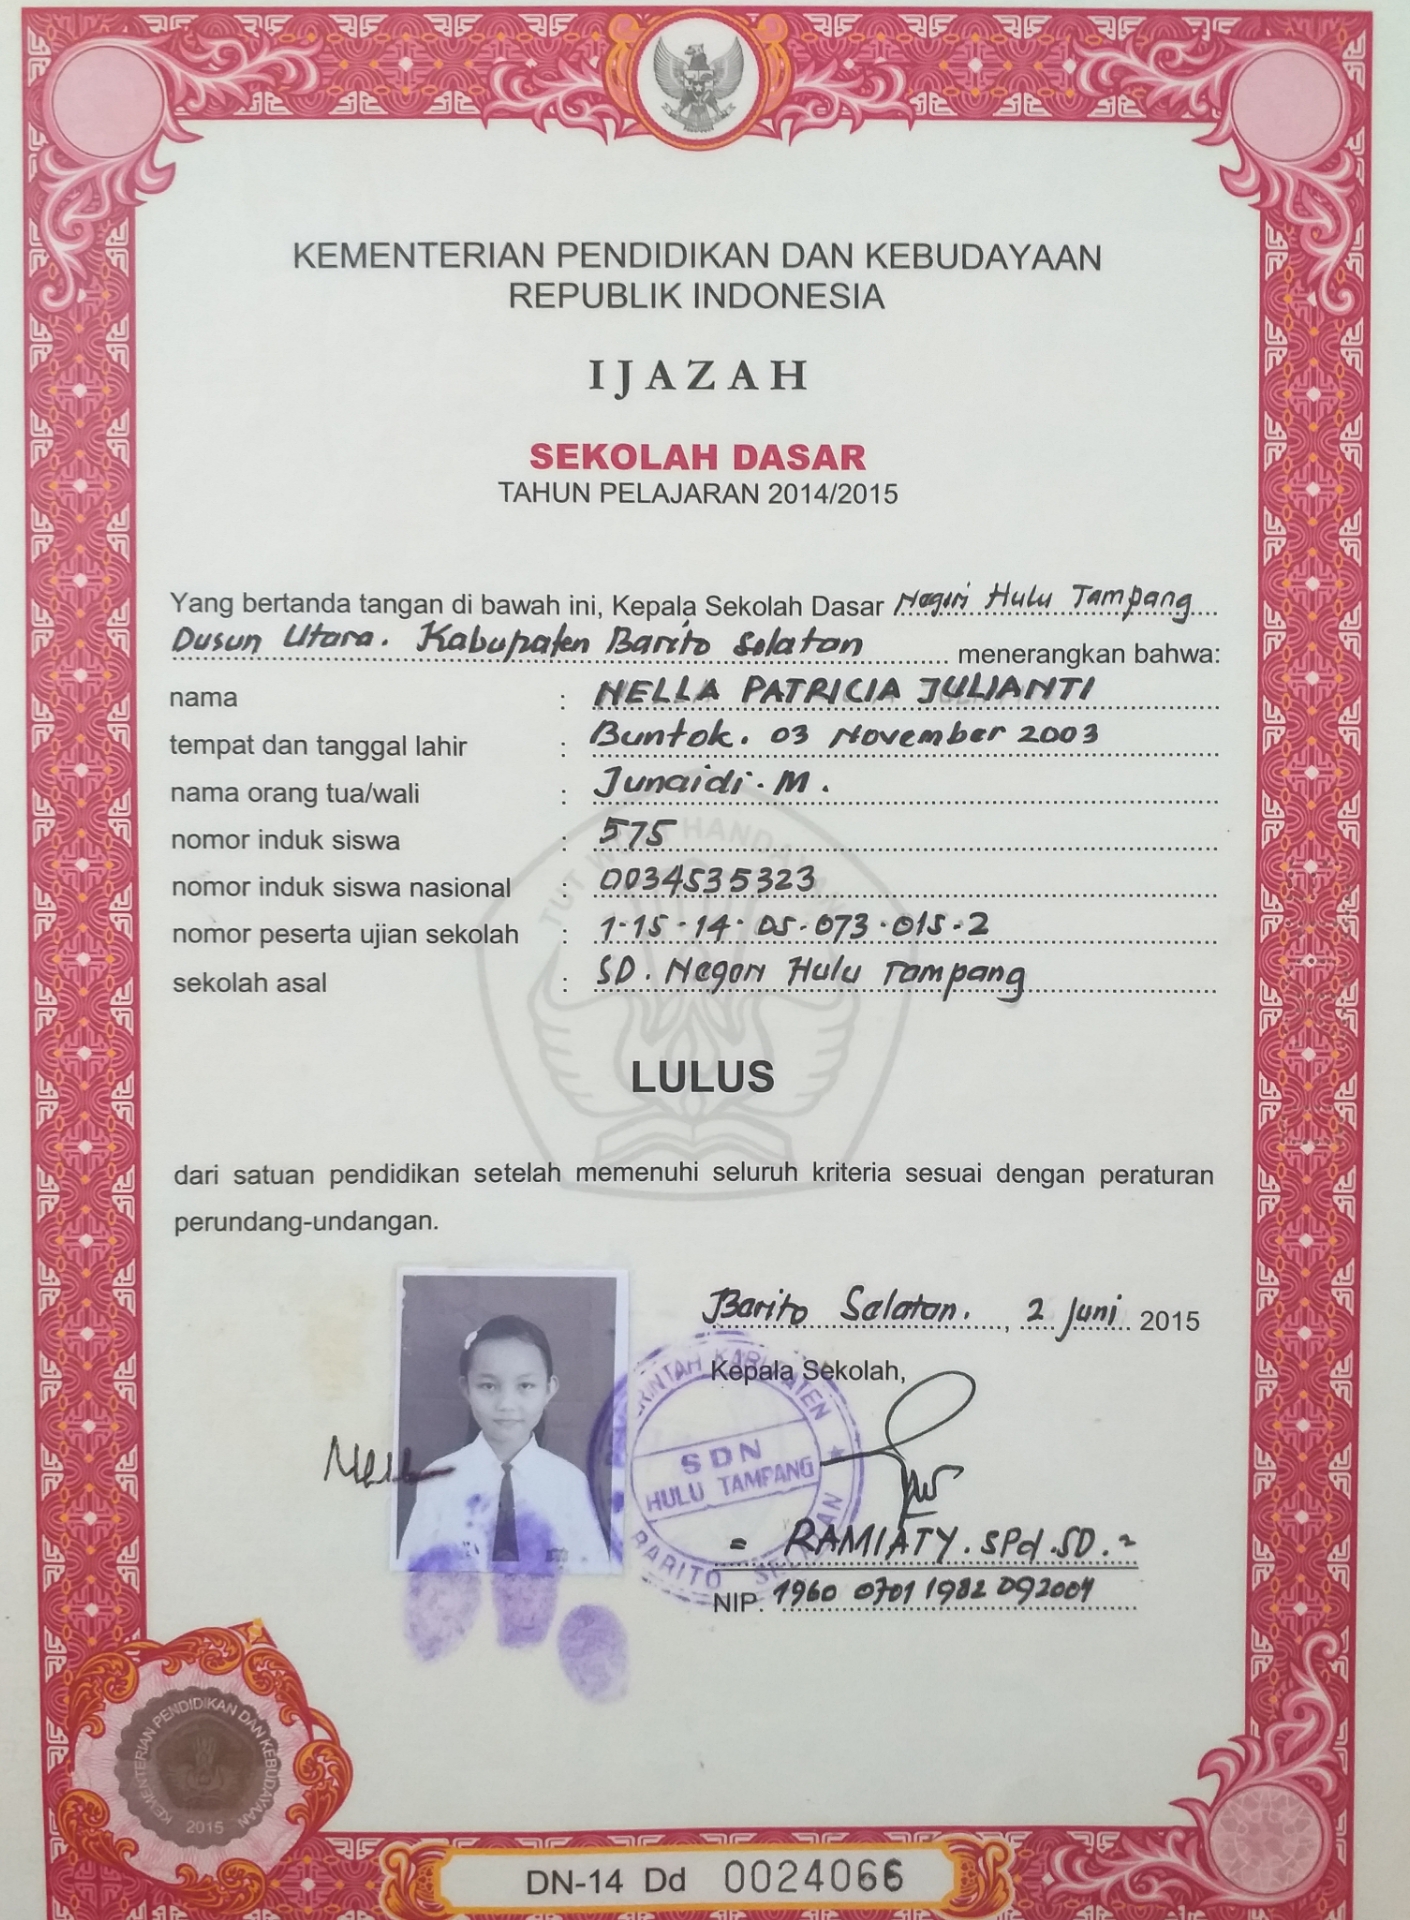 KEMENTERIAN PENDIDIKAN DAN KEBUDAYAAN
REPUBLIK INDONESIA
IJAZAH
SEKOLAH DASAR
TAHUN PELAJARAN 2014/2015
Yang bertanda tangan di bawah ini, Kepala Sekolah Dasar Negeri Hulu Tampang
Dusun Utara. Kabupaten Barito Selatan menerangkan bahwa:
nama : NELLA PATRICIA JULIANTI
tempat dan tanggal lahir : Buntok. 03 November 2003
nama orang tua/wali : Junaidi. M.
nomor induk siswa : 575
nomor induk siswa nasional : 0034535323
nomor peserta ujian sekolah : 1-15-14-05-073-015-2
sekolah asal : SD. Negeri Hulu Tampang
TUT WURI HANDAYANI
LULUS
dari satuan pendidikan setelah memenuhi seluruh kriteria sesuai dengan peraturan
perundang-undangan.
Barito Selatan, 2 Juni 2015
Kepala Sekolah,
KABUPATEN
SDN
HULU TAMPANG
BARITO
= RAMIATY. SPd.SD. =
NIP. 1960 0701 1982 092004
KEMENTERIAN PENDIDIKAN DAN KEBUDAYAAN
2015
DN-14 Dd 0024066